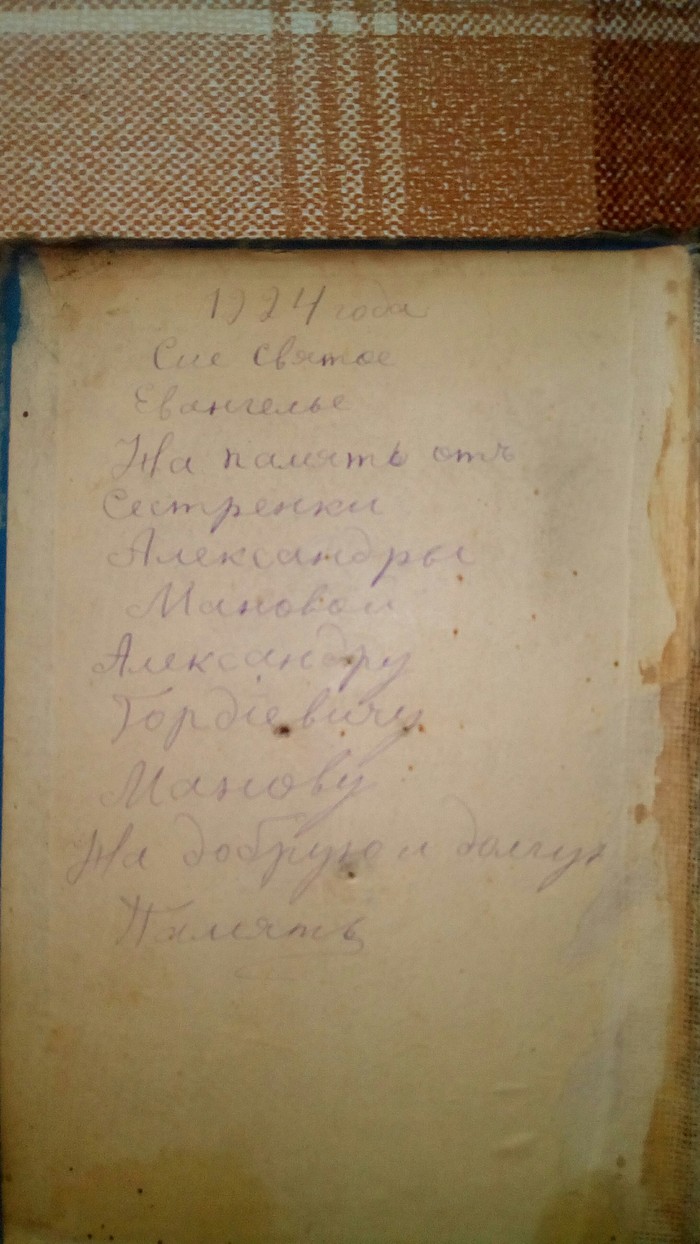 1924 года
Сие святое
Евангелье
На память отъ
Сестренки
Александры
Мановой
Александру
Гордіевичу
Манову
На добрую и долгую
Память